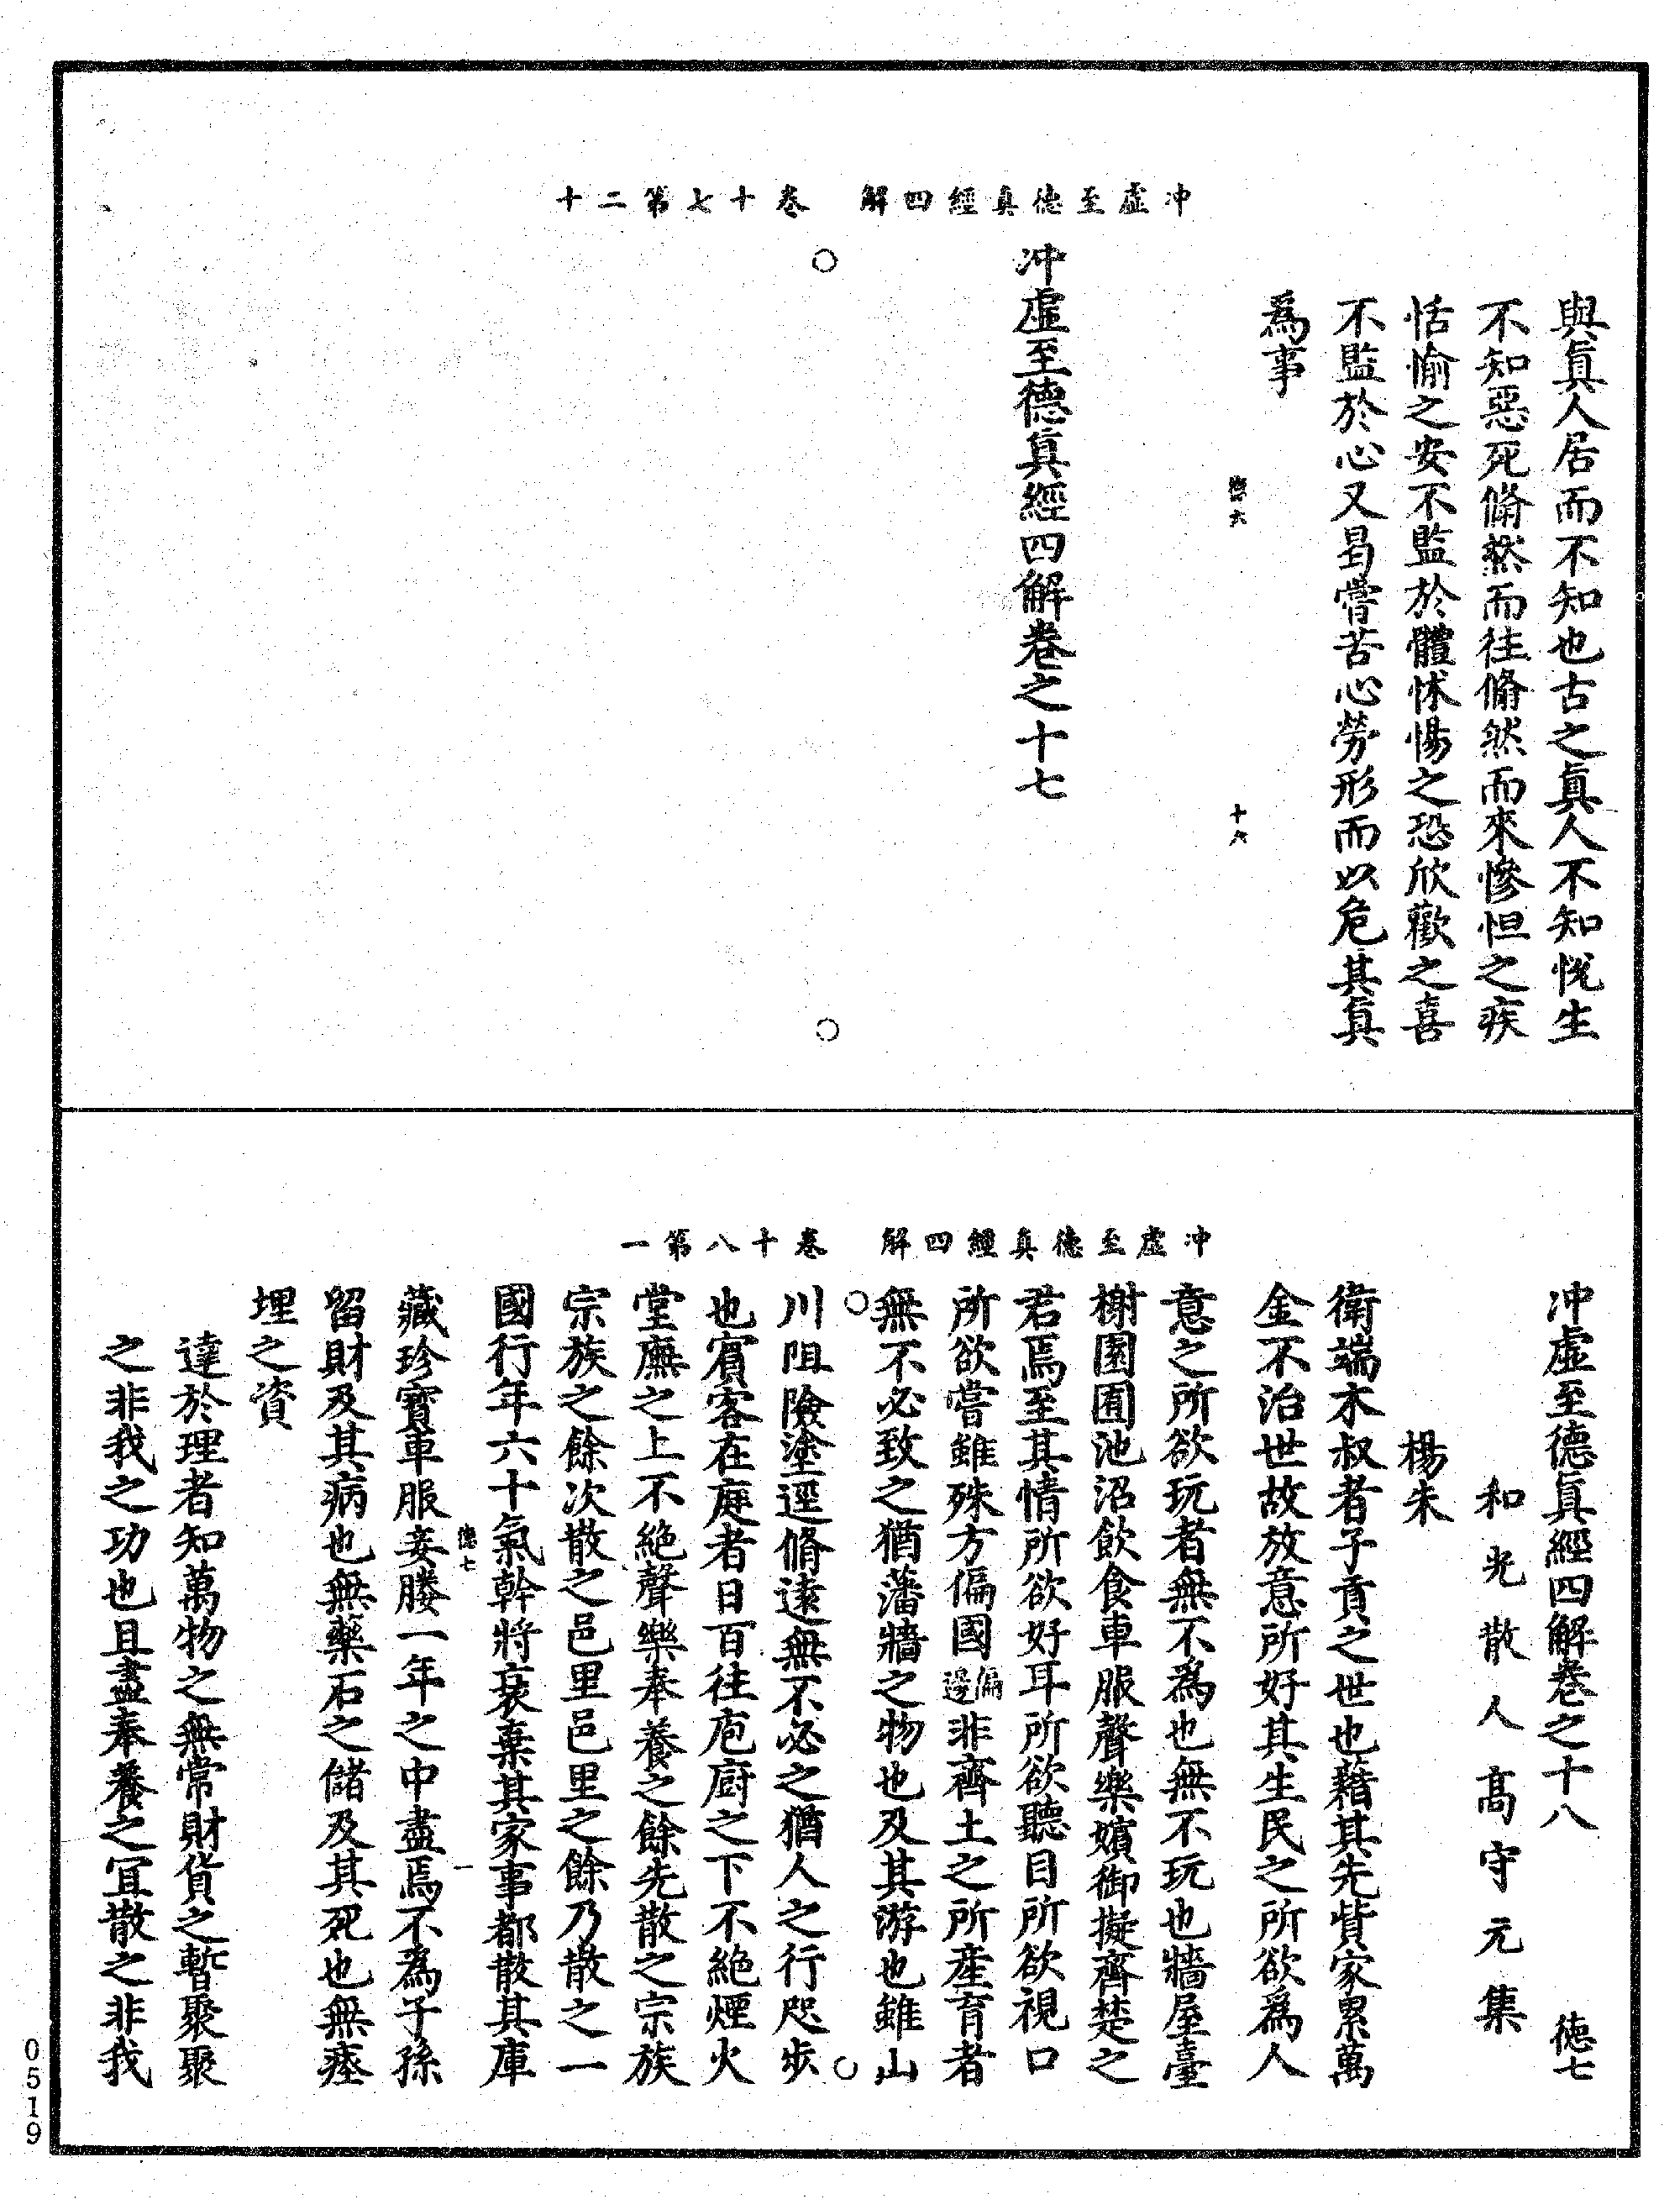 冲虛至德真經四解　卷十七第二十
與真人居而不知也古之真人不知悅生
不知惡死翛然而往翛然而來慘怛之疾
恬愉之安不監於體怵惕之恐欣歡之喜
不監於心又曷嘗苦心勞形而以危其真
爲事
十六
冲虛至德真經四解卷之十七
冲虛至德真經四解　卷十八第一
冲虛至德真經四解卷之十八　德七
和光散人高守元集
楊朱
衛端木叔者子貢之世也藉其先貲家累萬
金不治世故放意所好其生民之所欲爲人
意之所欲玩者無不爲也無不玩也牆屋臺
榭園囿池沼飲食車服聲樂嬪御擬齊楚之
君焉至其情所欲好耳所欲聽目所欲視口
所欲嘗雖殊方偏國偏邊非齊土之所產育者
無不必致之猶藩牆之物也及其游也雖山
川阻險塗逕脩遠無不必之猶人之行咫步
也賓客在庭者日百往庖廚之下不絕煙火
堂廡之上不絕聲樂奉養之餘先散之宗族
宗族之餘次散之邑里邑里之餘乃散之一
國行年六十氣幹將衰棄其家事都散其庫
德七　一
藏珍寶車服妾媵一年之中盡焉不為子孫
留財及其病也無藥石之儲及其死也無瘞
埋之資
達於理者知萬物之無常財貨之暫聚聚
之非我之功也且盡奉養之宜散之非我
0519